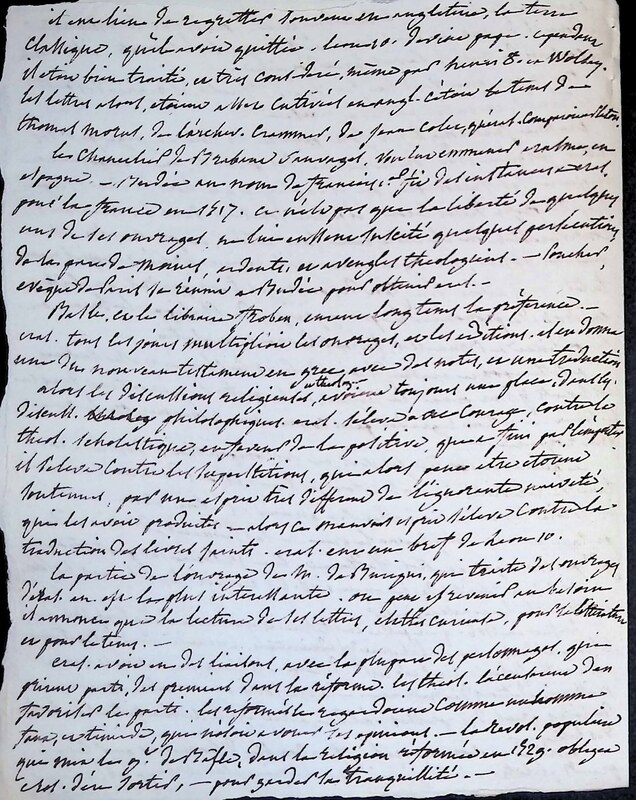 il eut lieu de regretter souvent en angleterre, la terre
classique, qu'il avoit quittée. leon 10. devint pape. cependant
il étoit bien traité, et très considéré, même par henri 8. et Wolsey.
les lettres alors, étoient assez cultivées en angl. c'étoit le tems de
thomas morus, de l'archev. Crammer, de jean colet,
le Chancelier de Brabant Sauvage, voulut emmener erasme, en
espagne. — Budée au nom de françois 1er fit des instances à eras.
pour la france en 1517. ce n'est pas que la liberté de quelques
uns de ses ouvrages, ne lui eussent suscité quelques persécutions
de la part de moines, ardents, et aveugles théologiens. — Poncher,
evêque de Paris se réunit à Budée pour obtenir eras. —
Basle, et le libraire froben, eurent longtems la préférence. —
eras. tous les jours multiplioit les ouvrages, et les éditions. il en donna
une du nouveau testament en grec, avec des notes, et une traduction
alors les discussions religieuses, avoient toujours une place, dans les
discuss. philosophiques. eras. s'éleva avec courage, contre la
théol. scholastique, en faveur de la positive, qui a fini par l'emporter
il s'éleva contre les superstitions, qui alors peut être étoient
soutenues, par un esprit très différent de l'ignorante naïveté
qui les avoit produites — alors ce mauvais esprit s'éleva contre la
traduction des livres saints. eras. eut un bref de Leon 10.
la partie de l'ouvrage de M. de Burigni, qui traite des ouvrages
d'eras. en est la plus intéressante. on peut y revenir au besoin
il annonce que la lecture de ses lettres, est très curieuse, pour la littérature
et pour le tems. —
eras. avoit eu des liaisons, avec la plupart des personnages, qui
prirent parti des premiers dans la réforme. les théol. l'accuserent d'en
favoriser le parti. les réformés le regardoient comme un homme
faux, et timide, qui n'osoit avouer ses opinions. — la révol. populaire
que mit les q. de Basle, dans la religion réformée en 1529. obligea
eras. d'en sortir, — pour garder sa tranquillité. —